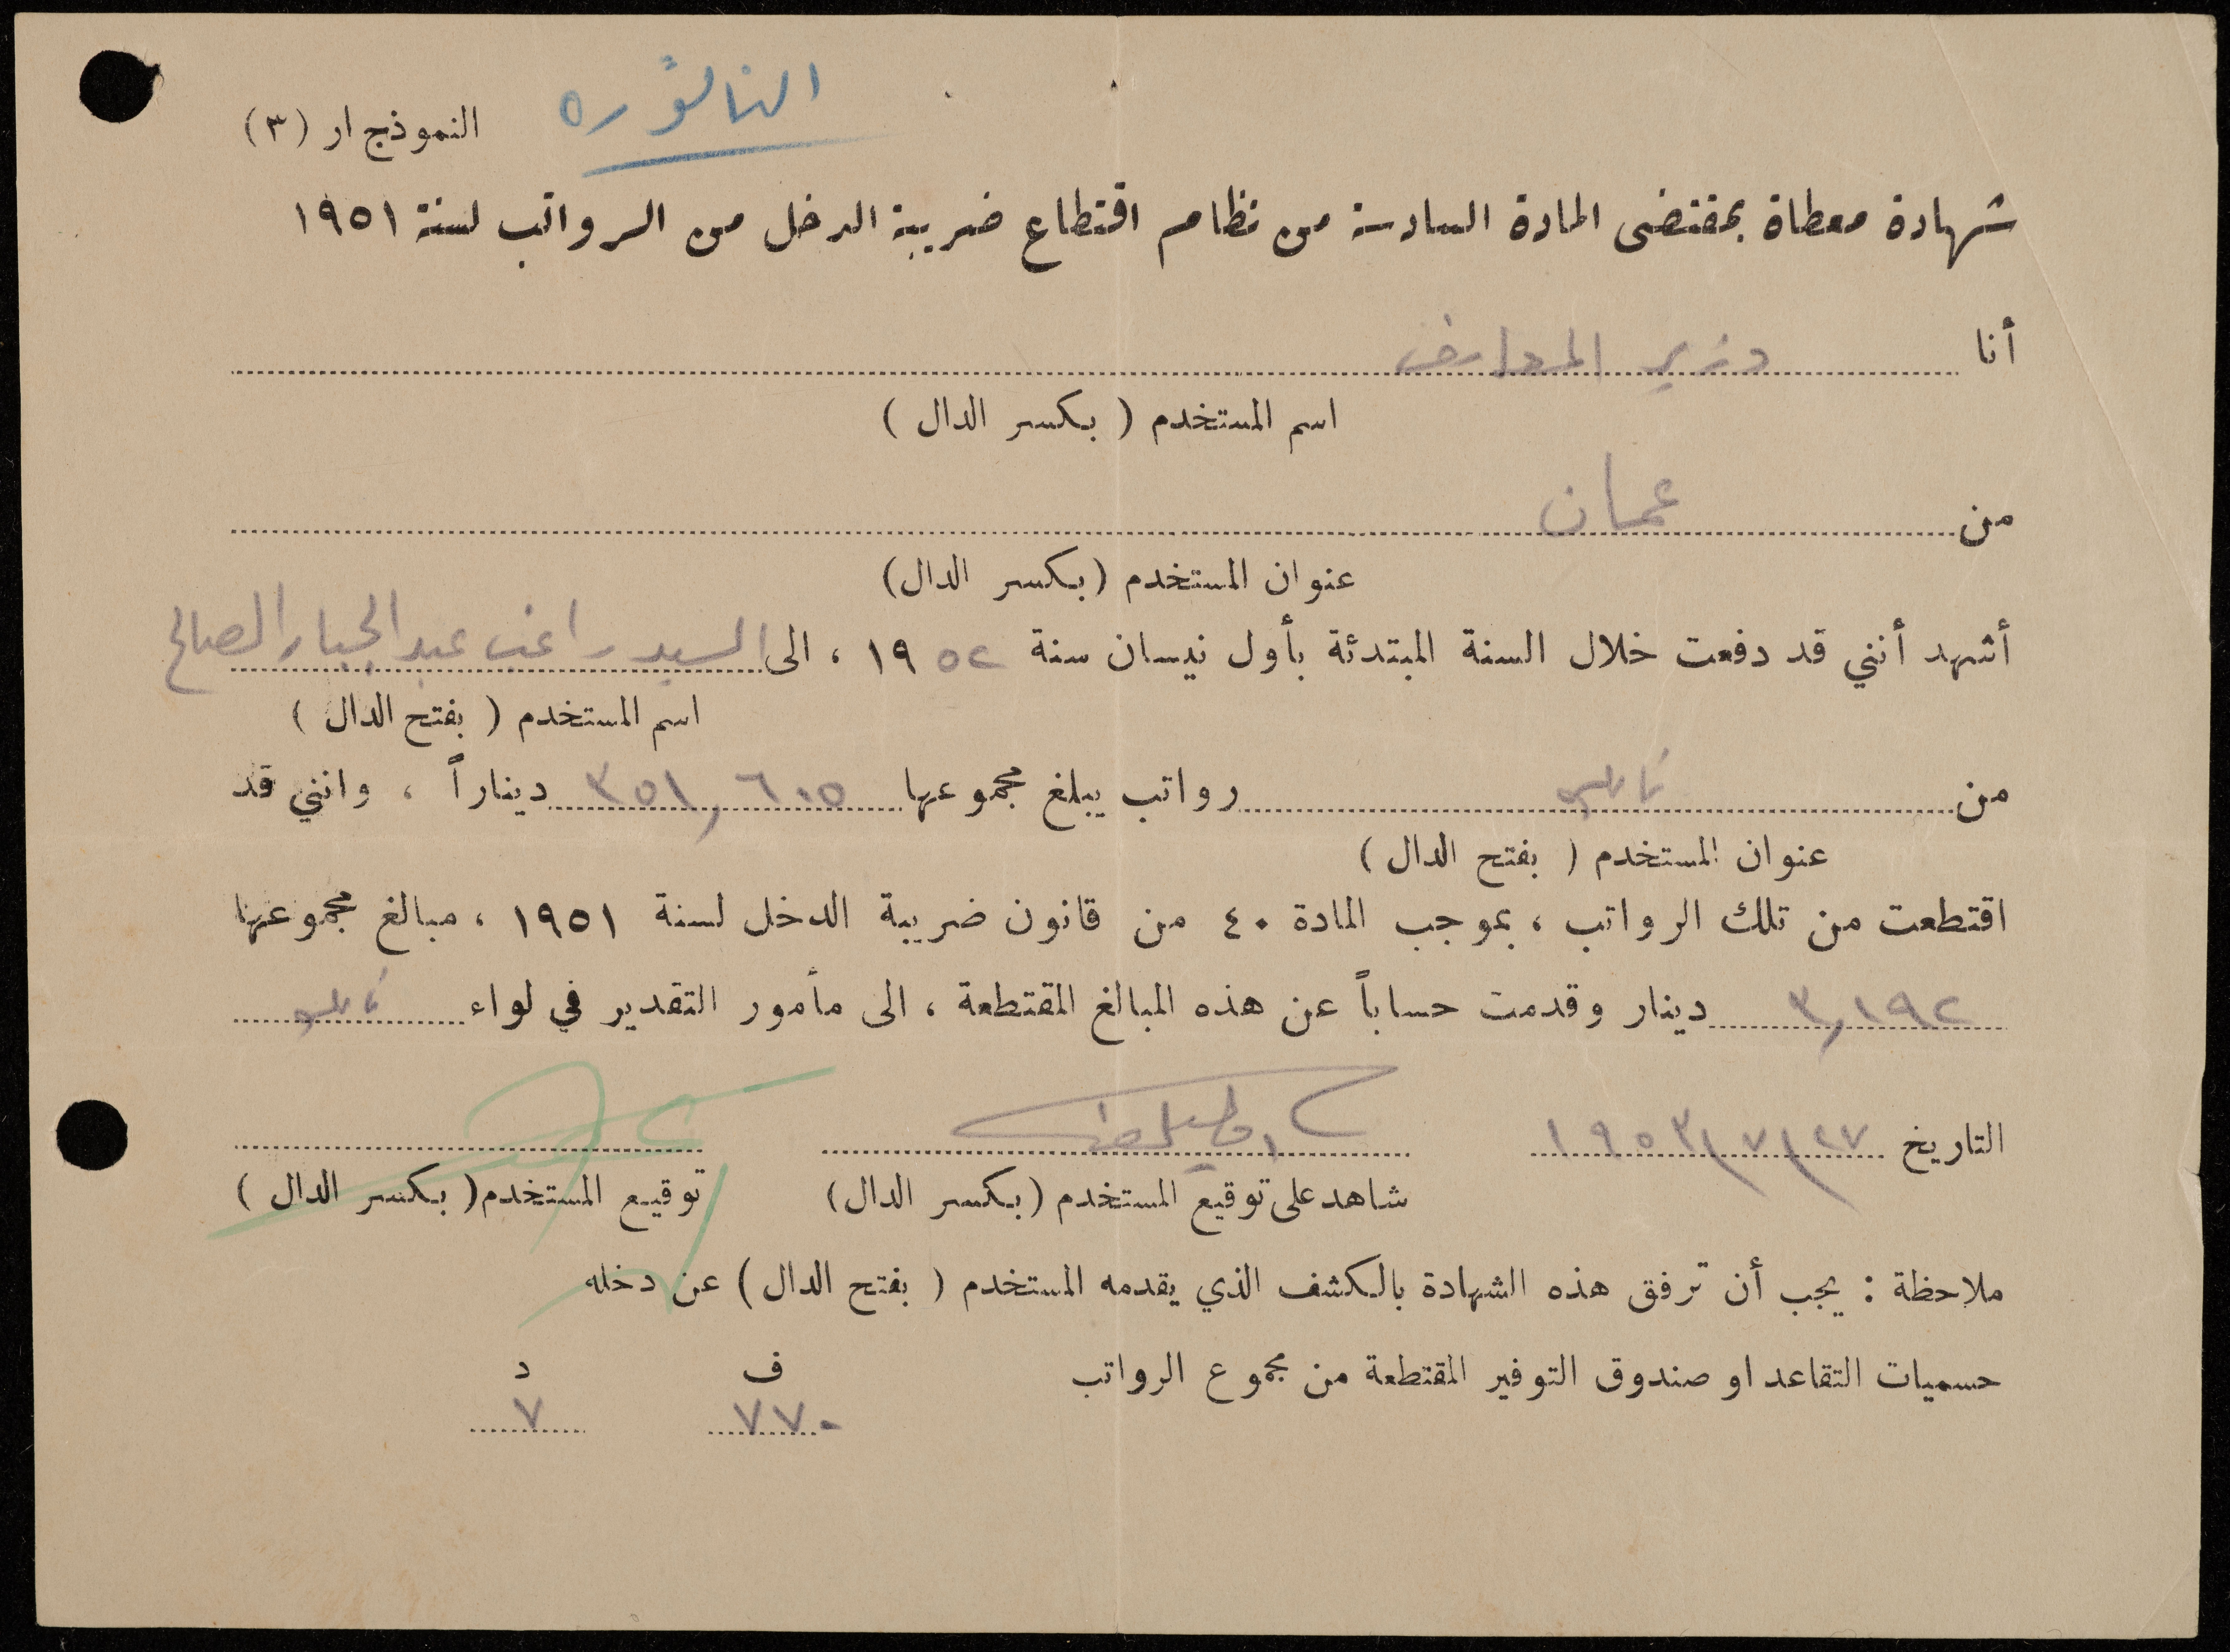 النموذج ار (٣)
شهادة معطاة بمقتضى المادة السادسة من نظام اقتطاع ضريبة الدخل من الرواتب لسنة ١٩٥١
أنا وزير المعارف
اسم المستخدم ( بكسر الدال )
من عمان
عنوان المستخدم (بكسر الدال)
أشهد أنني قد دفعت خلال السنة المبتدئة بأول نيسان سنة ١٩٥٢ ، الى السيد راغب عبد الجبار الصالح
اسم المستخدم ( بفتح الدال )
من نابلس رواتب يبلغ مجموعها ٣٥١,٦٠٥ ديناراً ، وانني قد
عنوان المستخدم ( بفتح الدال )
اقتطعت من تلك الرواتب ، بموجب المادة ٤٠ من قانون ضريبة الدخل لسنة ١٩٥١ ، مبالغ مجموعها
٣,١٩٢ دينار وقدمت حساباً عن هذه المبالغ المقتطعة ، الى مأمور التقدير في لواء نابلس
التاريخ ٢٧/٧/١٩٥٣
شاهد على توقيع المستخدم (بكسر الدال) توقيع المستخدم( بكسر الدال )
ملاحظة : يجب أن ترفق هذه الشهادة بالكشف الذي يقدمه المستخدم ( بفتح الدال ) عن دخله
حسميات التقاعد او صندوق التوفير المقتطعة من مجموع الرواتب ف د
٧٧٠ ٧